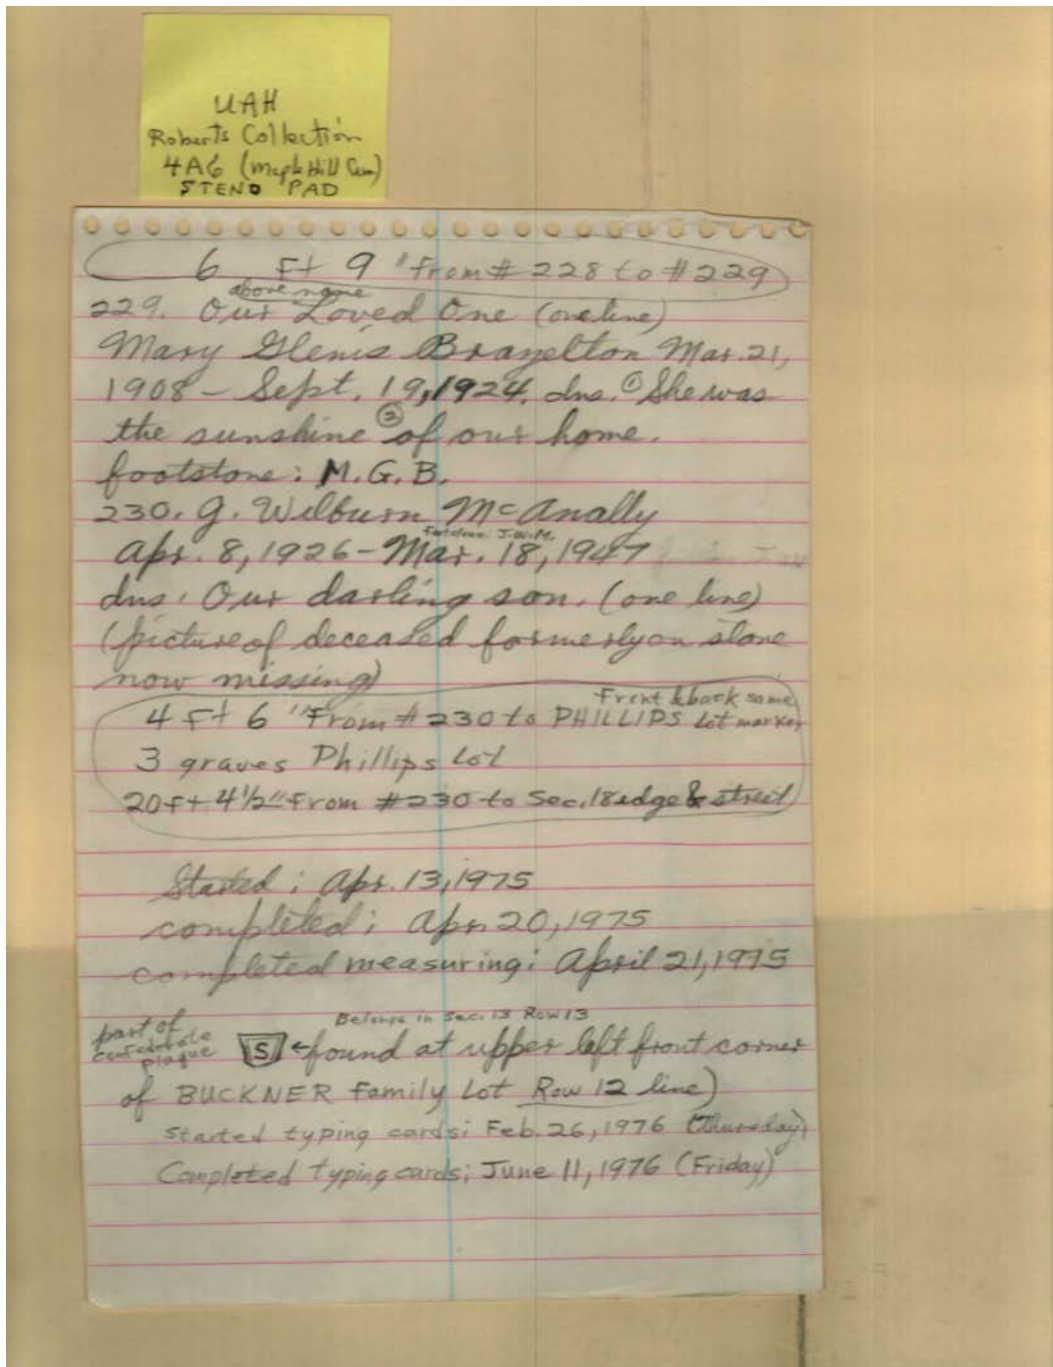 UAH
Roberts Collection
4A6 (Maple Hill Cem)
STENO PAD
6 Ft 9 "From # 228 to # 229
above name
229. Our Loved One (one line)
Mary Glenis Brazelton Mar. 21,
1908 - Sept. 19, 1924. dns. ① She was
the sunshine ② of our home.
footstone: M.G.B.
230. J. Wilburn McAnally
Footstone: J.W.M.
Apr. 8, 1926 - Mar. 18, 1947
dns. Our darling son. (one line)
(picture of deceased formerly on stone
now missing)
Front & back same
4 Ft 6 "From # 230 to PHILLIPS Lot marker
3 graves Phillips Lot
20 Ft 4 1/2" From # 230 to Sec. 18 edge & street
Started: Apr. 13, 1975
completed: Apr. 20, 1975
completed measuring: April 21, 1975
Belongs in Sec. 13 Row 13
part of
confederate
plaque
S ← found at upper left front corner
of BUCKNER Family Lot Row 12 line)
Started typing cards: Feb. 26, 1976 (Thursday)
Completed typing cards; June 11, 1976 (Friday)